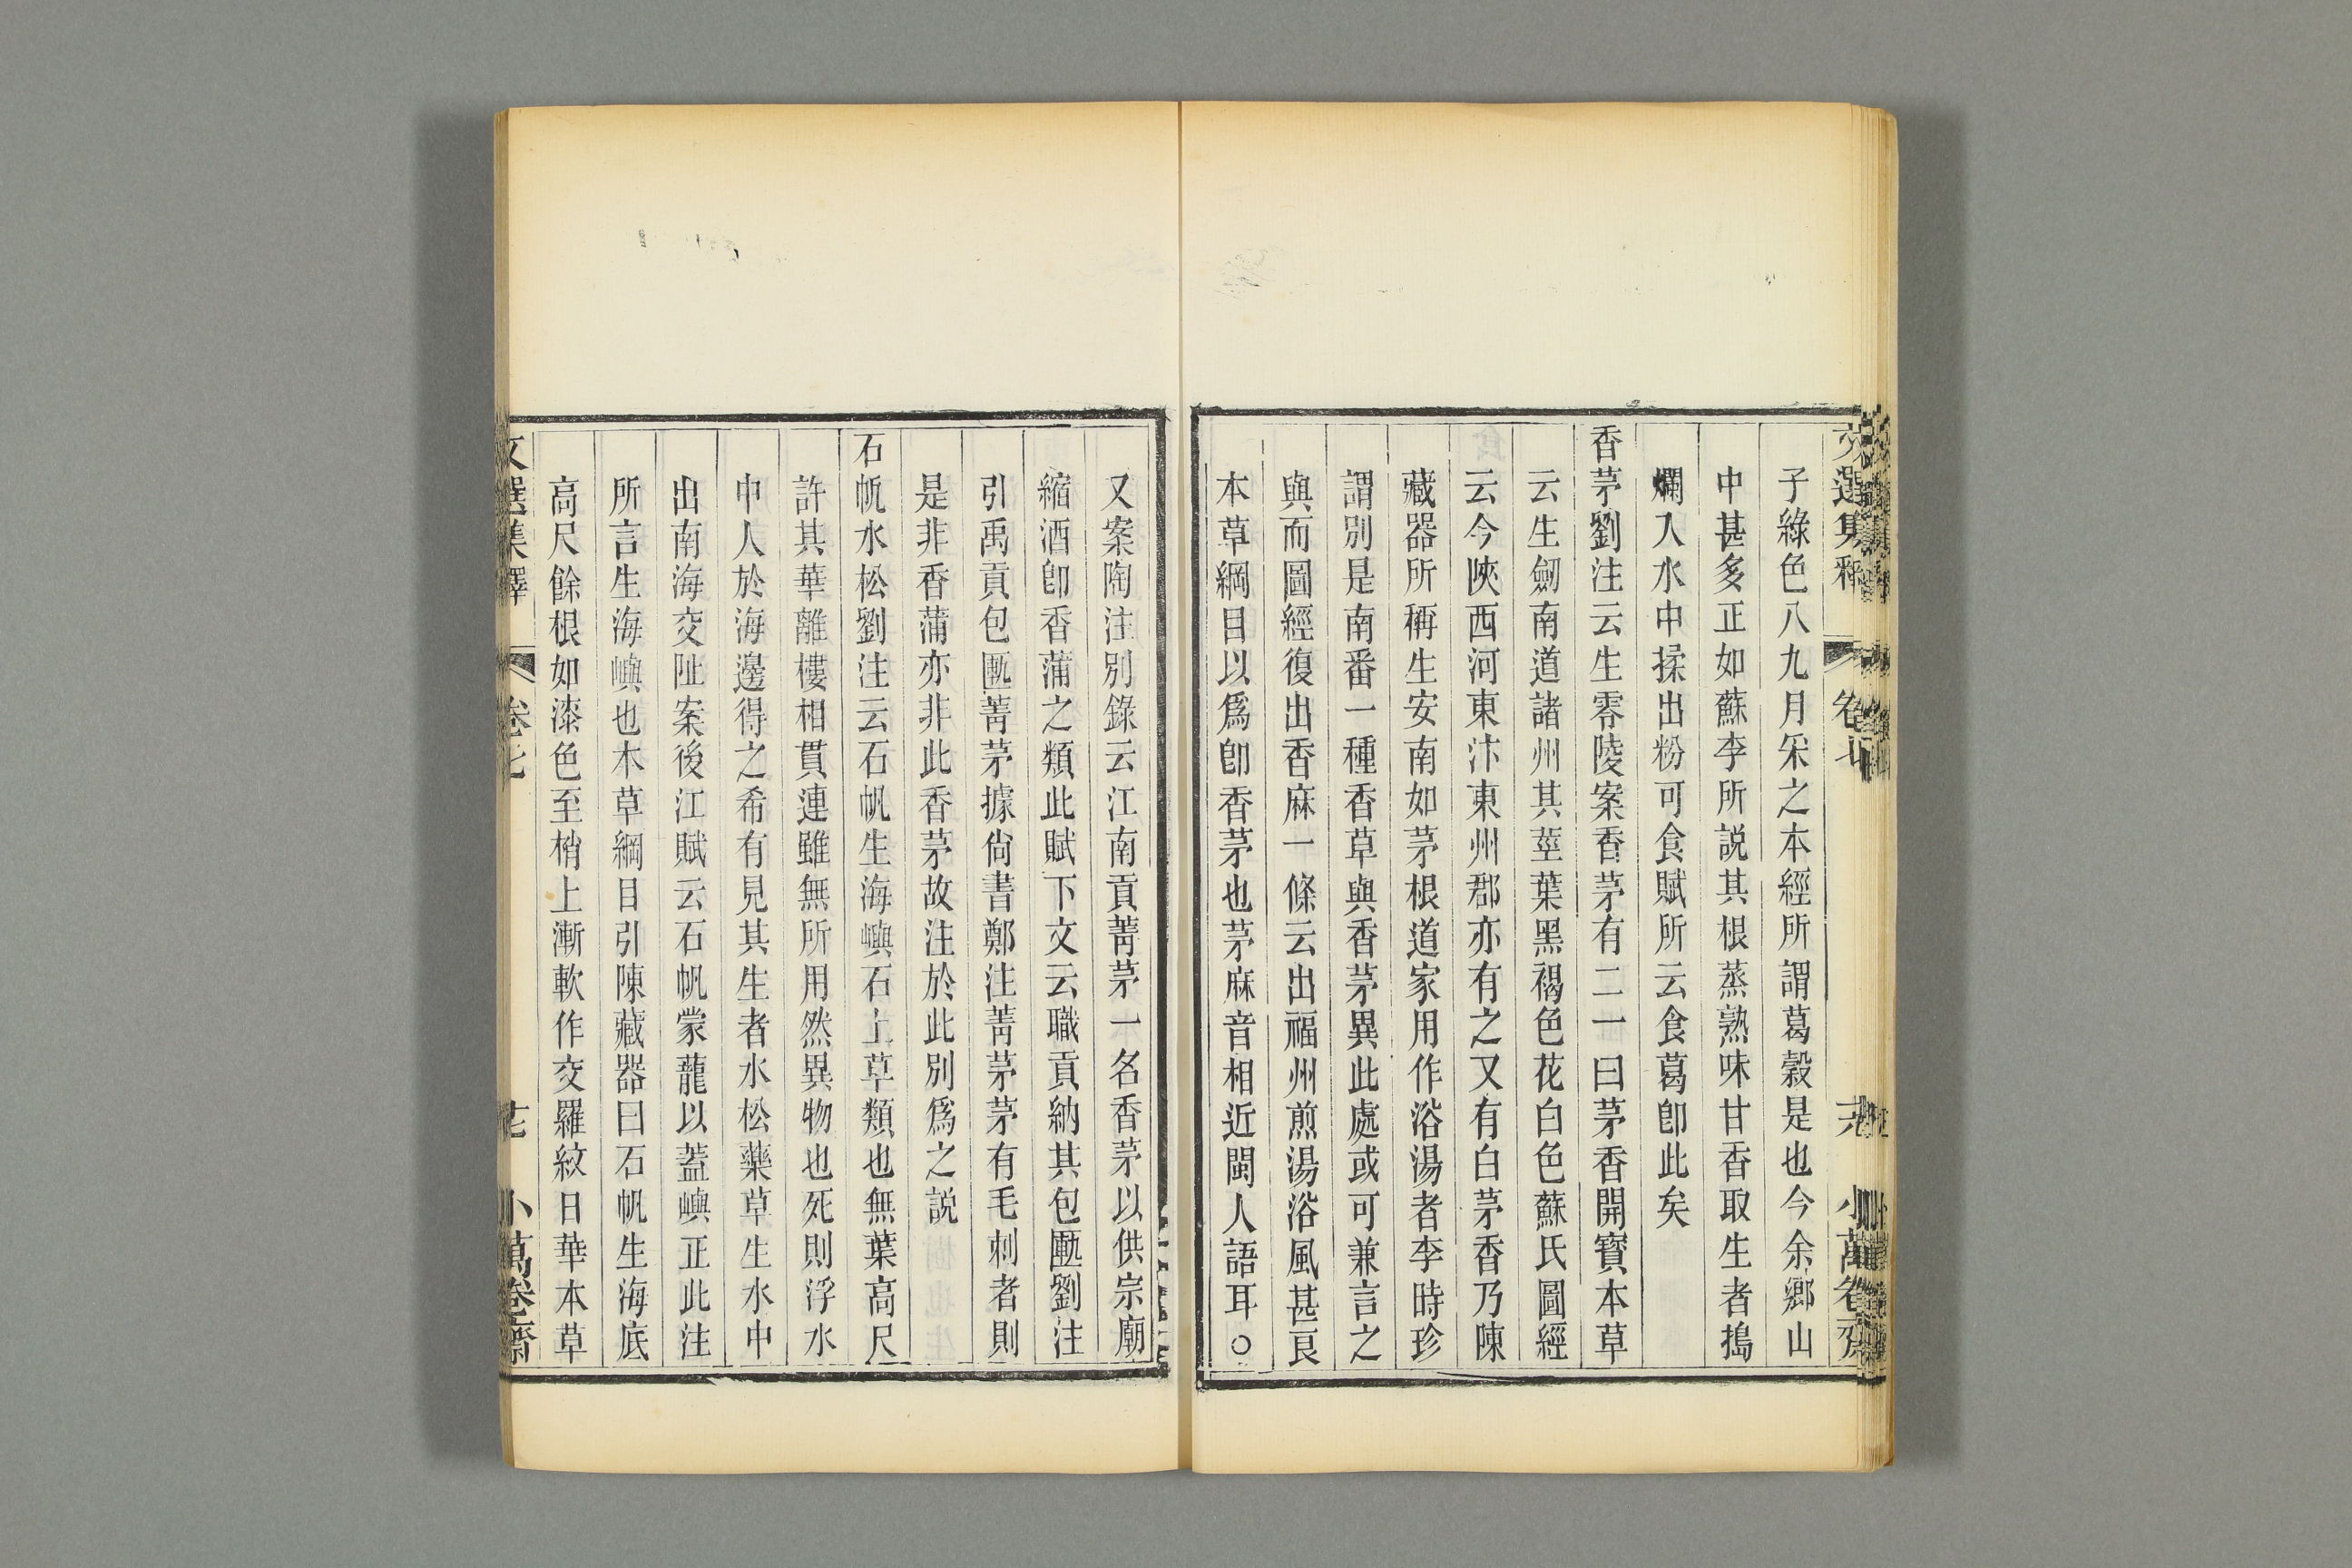 子綠色八九月采之本經所謂葛穀是也今余鄉山
中甚多正如蘇李所說其根蒸熟味甘香取生者搗
爛入水中揉出粉可食賦所云食葛卽此矣
香茅劉注云生零陵案香茅有二一曰茅香開寳本草
云生劒南道諸州其莖葉黑褐色花白色蘇氏圖經
云今陝西河東汴東州郡亦有之又有白茅香乃陳
藏器所稱生安南如茅根道家用作浴湯者李時珍
謂別是南番一種香草與香茅異此處或可兼言之
與而圖經復出香麻一條云出福州煎湯浴風甚良
本草綱目以爲卽香茅也茅麻音相近閩人語耳○
又案陶注別錄云江南貢菁茅一名香茅以供宗廟
縮酒卽香蒲之類此賦下文云職貢納其包匭劉注
引禹貢包匭菁茅據尙書鄭注菁茅茅有毛刺者則
是非香蒲亦非此香茅故注於此別爲之說
石帆水松劉注云石帆生海嶼石上草類也無葉高尺
許其華離樓相貫連雖無所用然異物也死則浮水
中人於海邊得之希有見其生者水松藥草生水中
出南海交阯案後江賦云石帆蒙蘢以蓋嶼正此注
所言生海嶼也本草綱目引陳藏器曰石帆生海底
高尺餘根如漆色至梢上漸軟作交羅紋日華本草
文選集釋
卷七
小萬卷齋